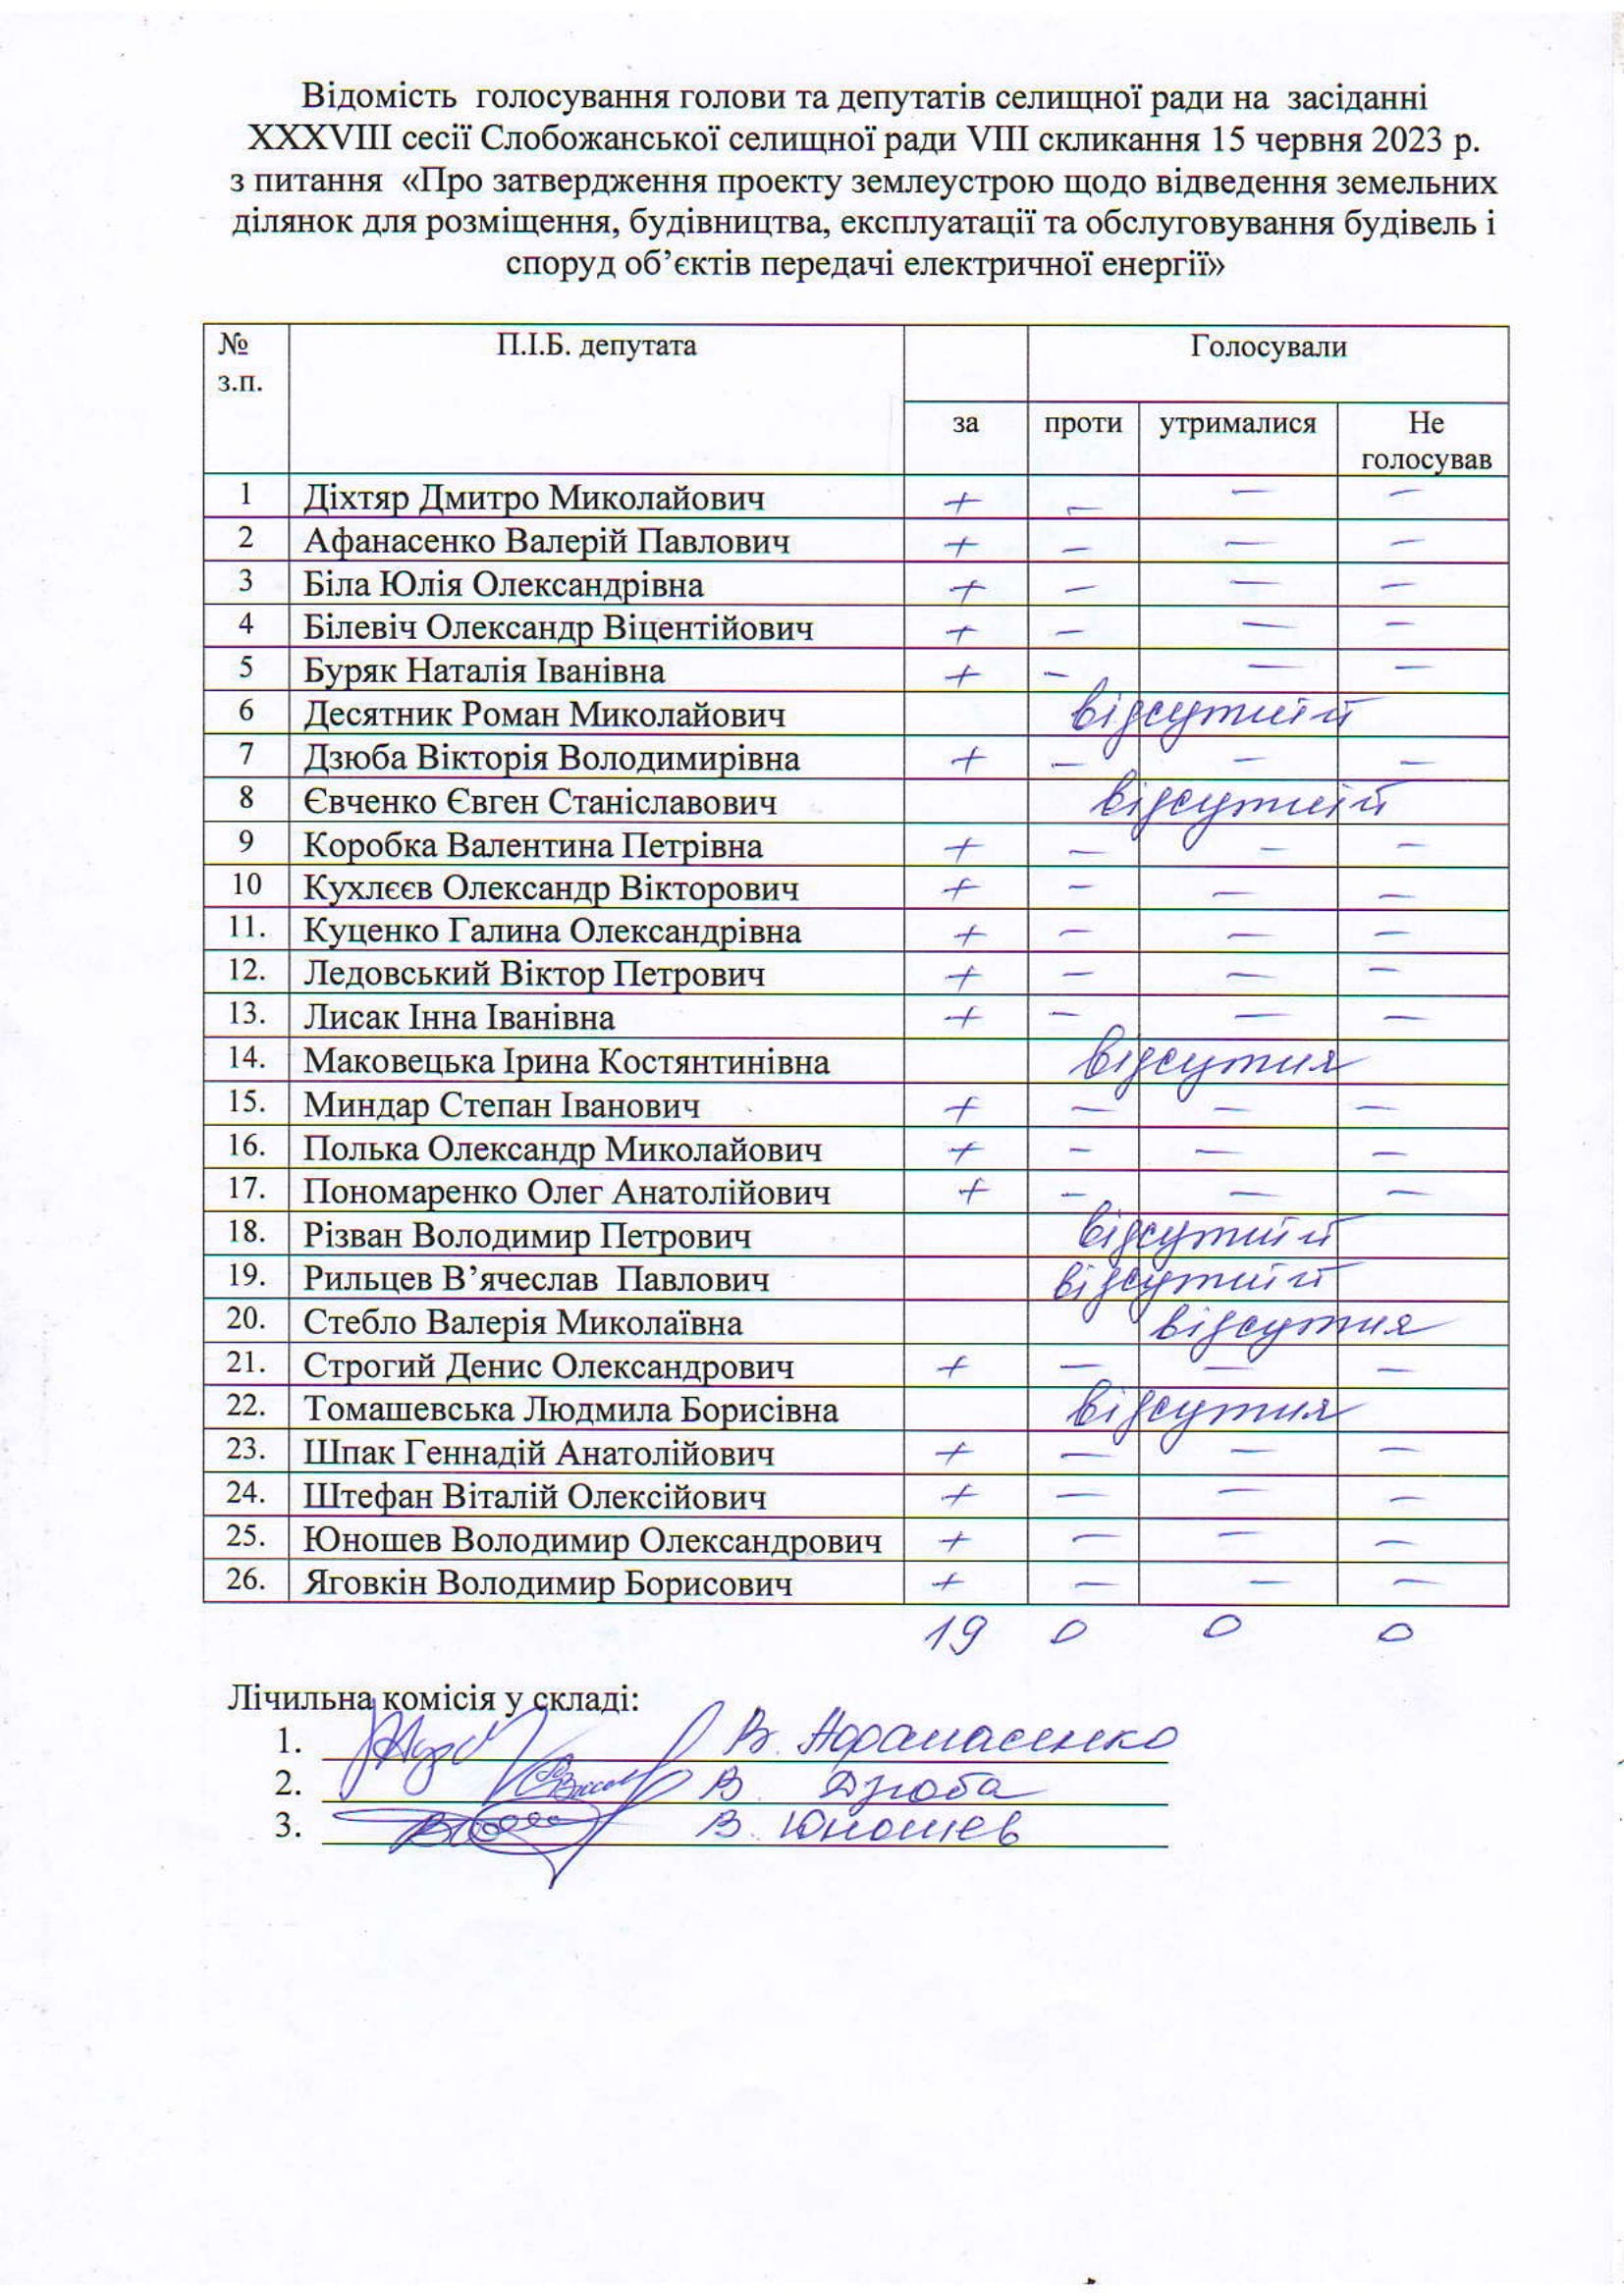 Відомість голосування голови та депутатів селищної ради на засіданні
XXXVIII сесії Слобожанської селищної ради VIII скликання 15 червня 2023 р.
з питання «Про затвердження проекту землеустрою щодо відведення земельних
ділянок для розміщення, будівництва, експлуатації та обслуговування будівель і
споруд об’єктів передачі електричної енергії»
№ з.п. П.І.Б. депутата Голосували
за проти утрималися Не голосував
1 Діхтяр Дмитро Миколайович + – – –
2 Афанасенко Валерій Павлович + – – –
3 Біла Юлія Олександрівна + – – –
4 Білевіч Олександр Віцентійович + – – –
5 Буряк Наталія Іванівна + – – –
6 Десятник Роман Миколайович відсутній
7 Дзюба Вікторія Володимирівна + – – –
8 Євченко Євген Станіславович відсутній
9 Коробка Валентина Петрівна + – – –
10 Кухлєєв Олександр Вікторович + – – –
11. Куценко Галина Олександрівна + – – –
12. Ледовський Віктор Петрович + – – –
13. Лисак Інна Іванівна + – – –
14. Маковецька Ірина Костянтинівна відсутня
15. Миндар Степан Іванович + – – –
16. Полька Олександр Миколайович + – – –
17. Пономаренко Олег Анатолійович + – – –
18. Різван Володимир Петрович відсутній
19. Рильцев В’ячеслав Павлович відсутній
20. Стебло Валерія Миколаївна відсутня
21. Строгий Денис Олександрович + – – –
22. Томашевська Людмила Борисівна відсутня
23. Шпак Геннадій Анатолійович + – – –
24. Штефан Віталій Олексійович + – – –
25. Юношев Володимир Олександрович + – – –
26. Яговкін Володимир Борисович + – – –
19 0 0 0
Лічильна комісія у складі:
1. В. Афанасенко
2. В. Дзюба
3. В. Юношев